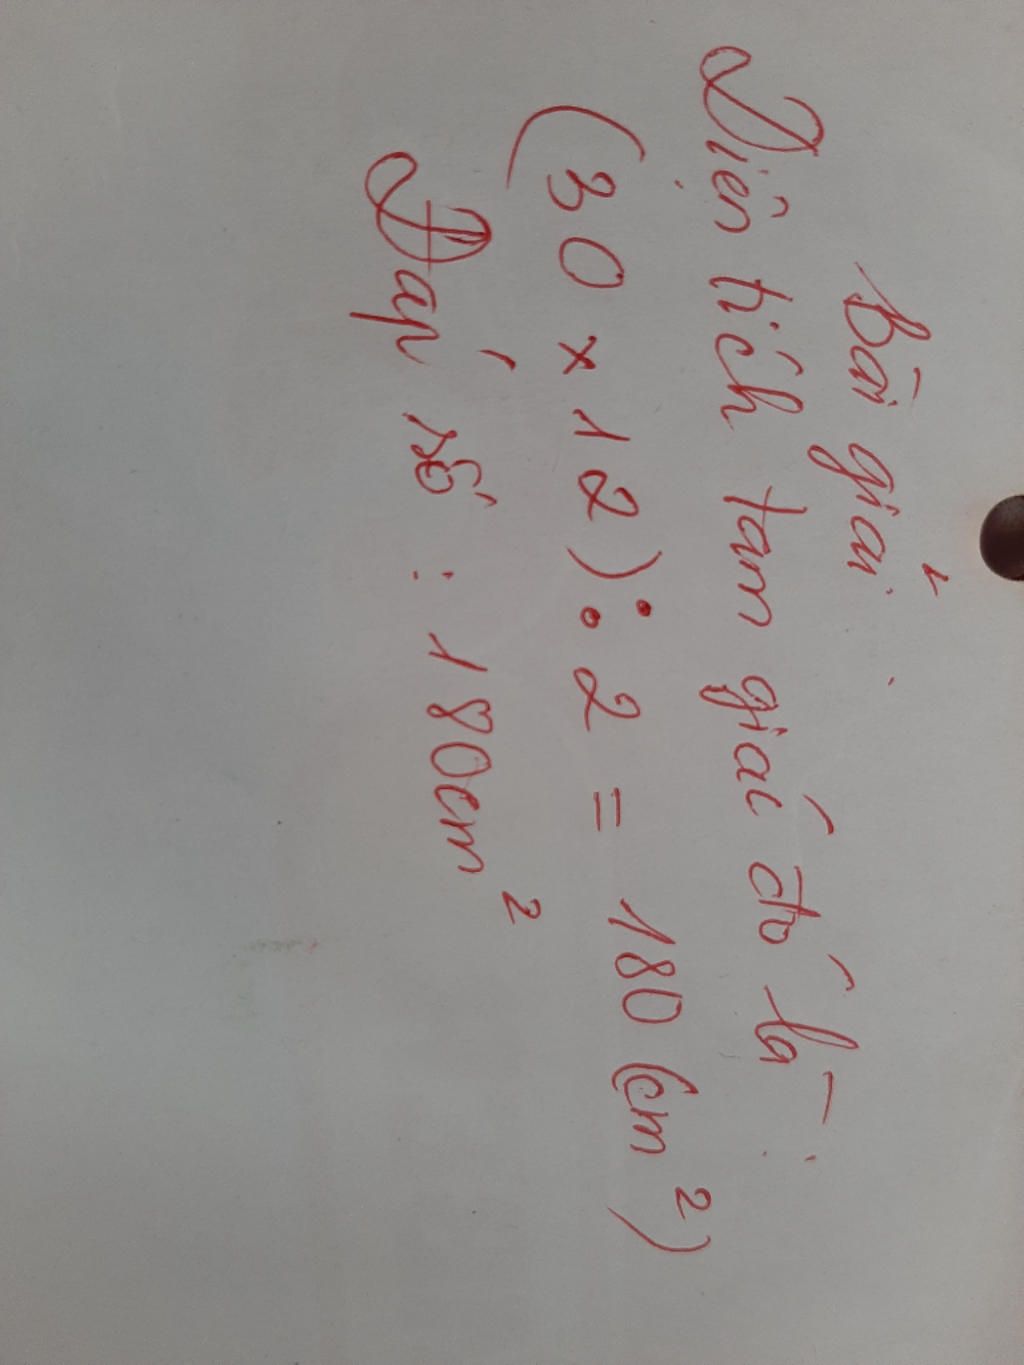 Bài giải:
Diện tích tam giác đó là:
(30 × 12) : 2 = 180 (cm²)
Đáp số : 180cm²